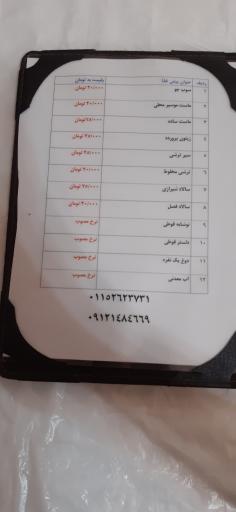 ردیف عنوان پیش غذا قیمت به تومان
۱ سوپ جو ۴۰/۰۰۰ تومان
۲ ماست موسیر محلی ۴۰/۰۰۰ تومان
۳ ماست ساده تومان
۴ زیتون پرورده تومان
۵ سیر ترشی تومان
۶ ترشی مخلوط تومان
۷ سالاد شیرازی تومان
۸ سالاد فصل تومان
۹ نوشابه قوطی نرخ مصوب
۱۰ دلستر قوطی نرخ مصوب
۱۱ دوغ یک نفره نرخ مصوب
۱۲ آب معدنی نرخ مصوب
۰۱۱۵۲۶۲۳۷۳۱
۰۹۱۲۱۴۸۴۶۶۹